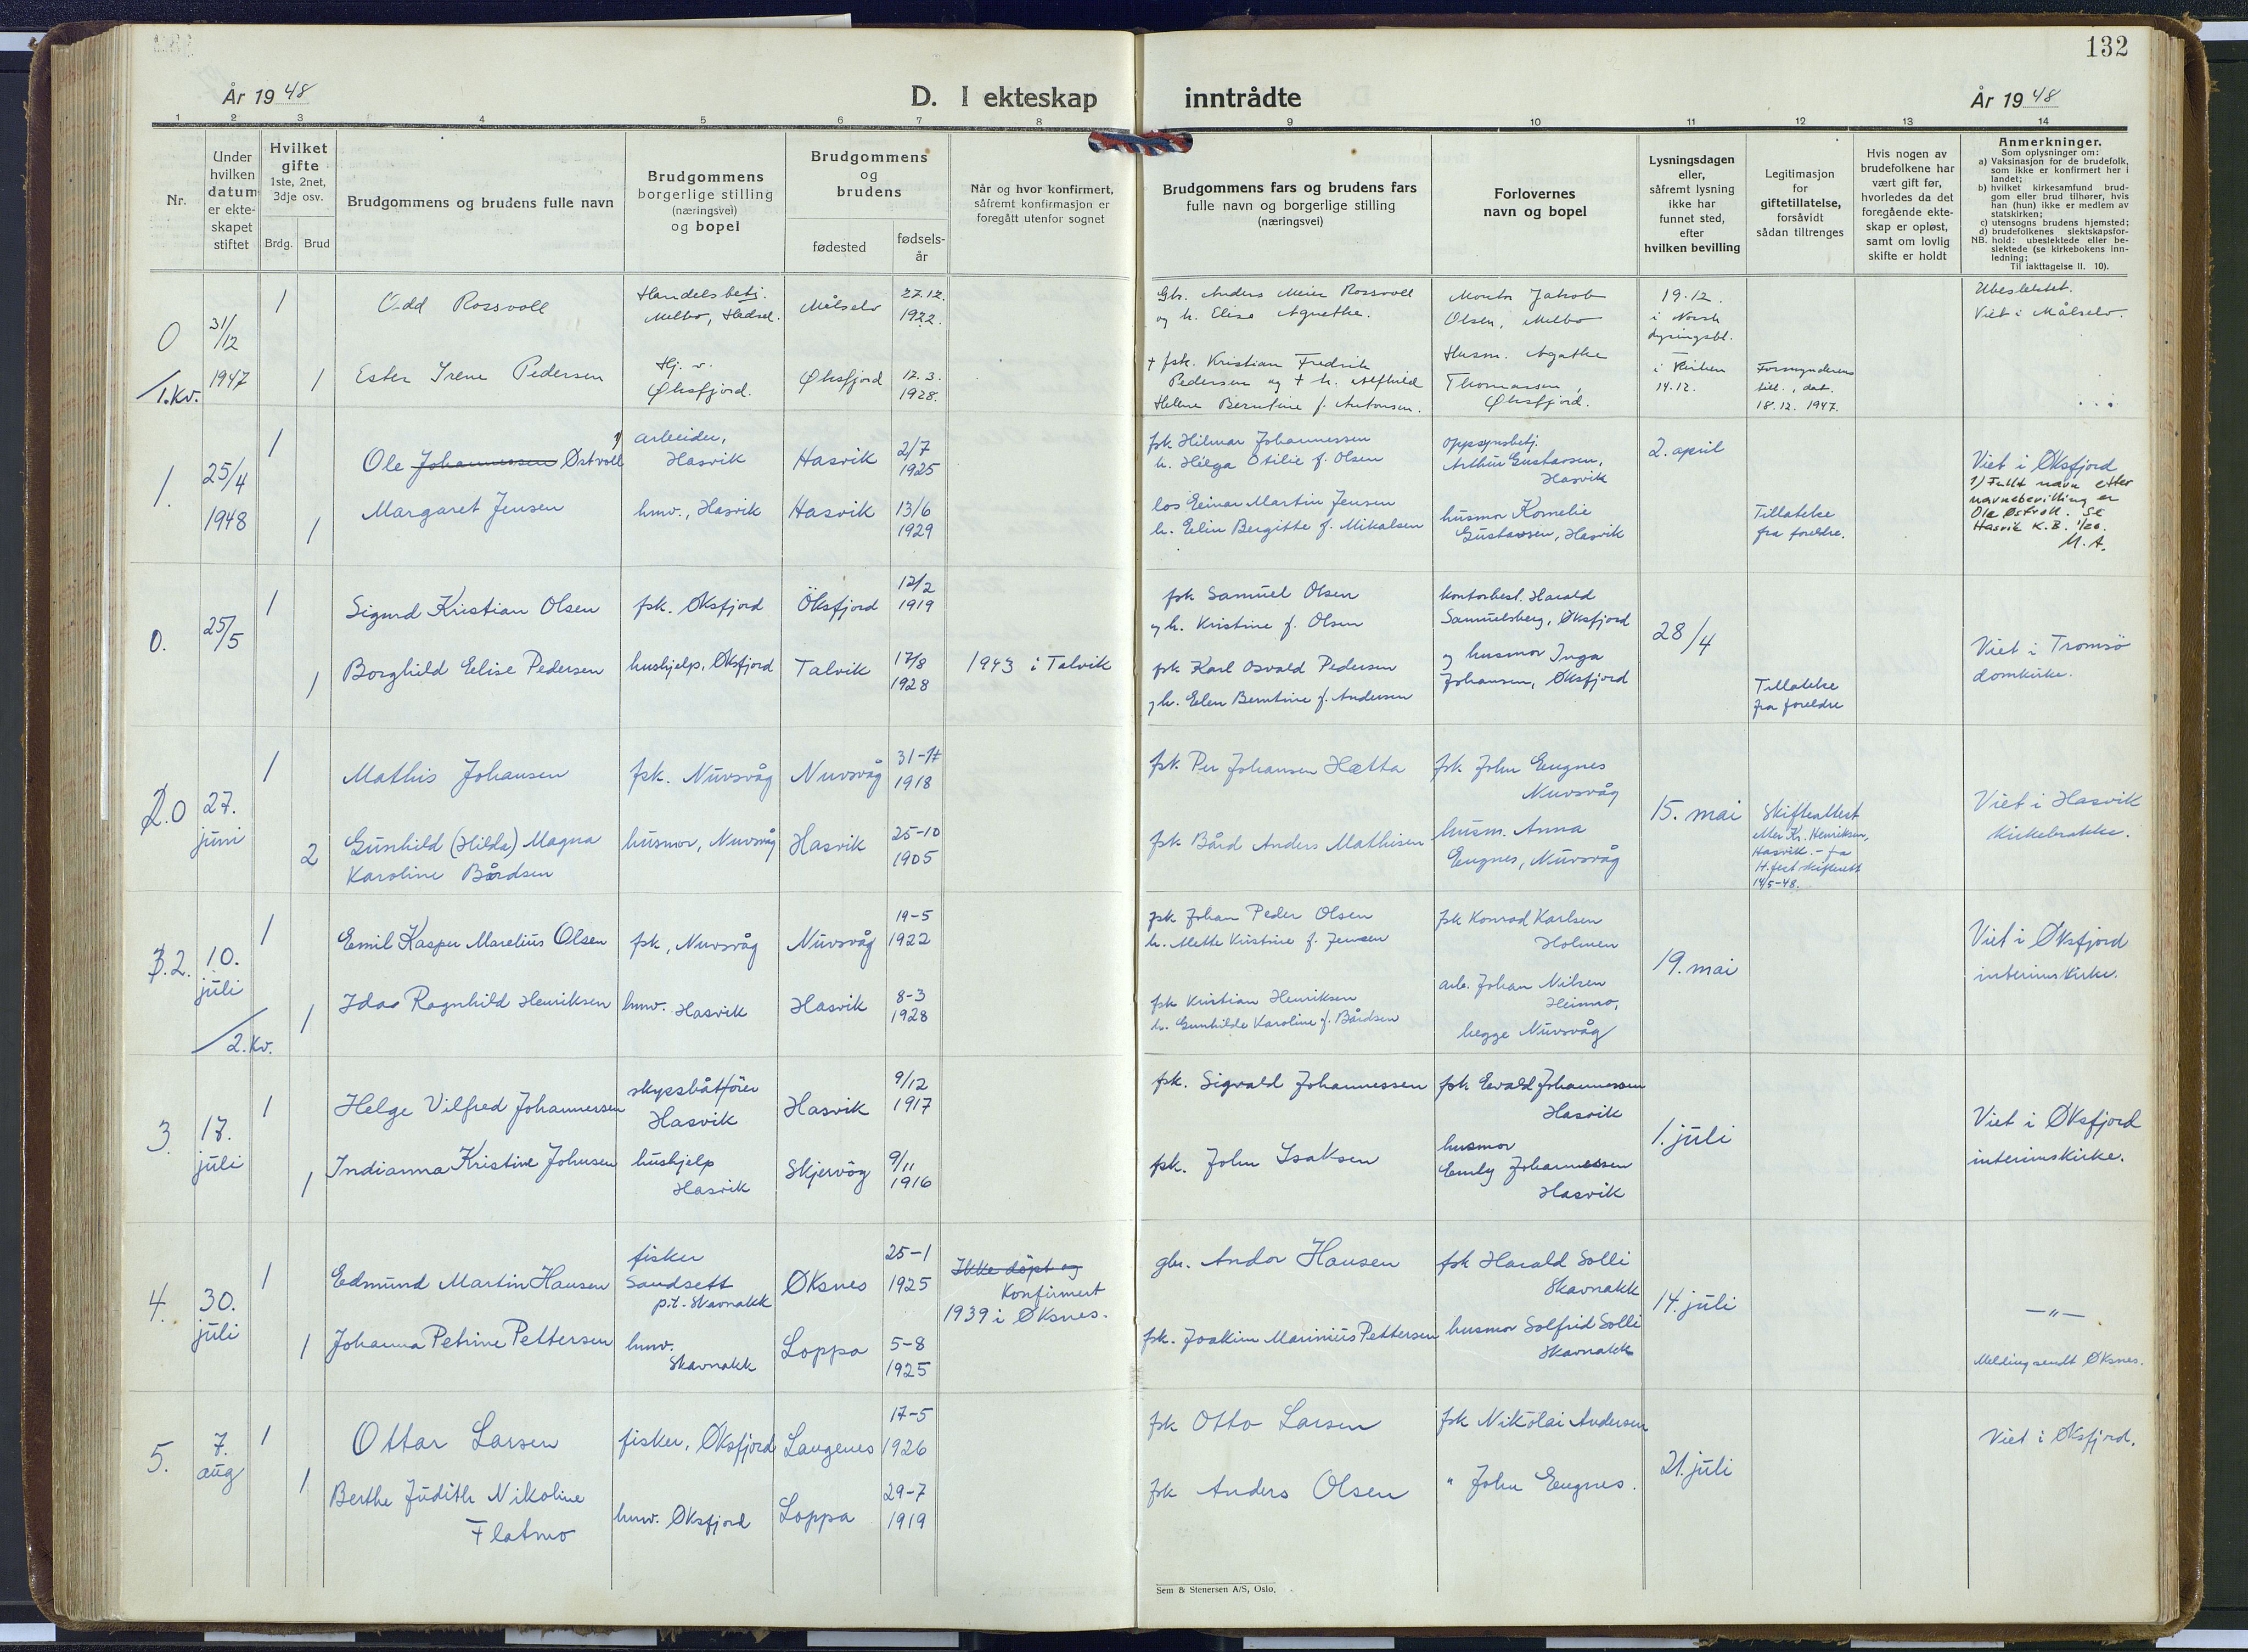 132
År 1948
D. I ekteskap inntrådte
År 1948
1 2 3 4 5 6 7 8 9 10 11 12 13 14
Nr.
Under hvilken datum er ekteskapet stiftet
Hvilket gifte
1ste, 2net, 3dje osv.
Brdg. Brud
Brudgommens og brudens fulle navn
Brudgommens borgerlige stilling (næringsvei) og bopel
Brudgommens og brudens
fødested
fødselsår
Når og hvor konfirmert, såfremt konfirmasjon er foregått utenfor sognet
Brudgommens fars og brudens fars fulle navn og borgerlige stilling (næringsvei)
Forlovernes navn og bopel
Lysningsdagen eller, såfremt lysning ikke har funnet sted, efter hvilken bevilling
Legitimasjon for giftetillatelse, forsåvidt sådan tiltrenges
Hvis nogen av brudefolkene har vært gift før, hvorledes da det foregående ekteskap er opløst, samt om lovlig skifte er holdt
Anmerkninger.
Som oplysninger om:
a) Vaksinasjon for de brudefolk, som ikke er konfirmert her i landet;
b) hvilket kirkesamfund brudgom eller brud tilhører, hvis han (hun) ikke er medlem av statskirken;
c) utensogns brudens hjemsted;
d) brudefolkenes slektskapsforhold: ubeslektede eller beslektede (se kirkebokens innledning;
NB. Til iakttagelse II. 10).
0
31/12
1947
1.kv.
1
Odd Rossvoll
Handelsbetj.
Melbo, Hadsel.
Målselv
27.12.
1922.
Gbr. Anders Meier Rossvoll
og h. Elise Agnethe.
Montør Jakob
Olsen, Melbo
19.12.
i Norsk
Lysningsbl.
Ubeslektet.
Viet i Målselv.
1
Ester Irene Pedersen
Hj. v.
Øksfjord.
Øksfjord
17.3.
1928.
+ fsk. Kristian Fredrik
Pedersen og + h. Alfhild
Helene Berntine f. Antonsen.
Husm. Agathe
Thomassen,
Øksfjord.
i kirken
14.12.
Formynderens
till., dat.
18.12. 1947.
1.
25/4
1948
1
Ole Johannessen Østvoll 1)
arbeider,
Hasvik
Hasvik
2/7
1925
fsk. Hilmar Johannessen
h. Helga Otilie f. Olsen
oppsynsbetj.
Arthur Gustavsen,
Hasvik
2. april
Viet i Øksfjord
1) Fullt navn etter
navnebevilling er
Ole Østvoll. Se
Hasvik K.B. 1/20.
M.A.
1
Margaret Jensen
hmv., Hasvik
Hasvik
13/6
1929
los Einar Martin Jensen
h. Elin Bergitte f. Mikalsen
husmor Kornelie
Gustavsen, Hasvik
Tillatelse
fra foreldre.
0.
25/5
1
Sigurd Kristian Olsen
fsk. Øksfjord
Öksfjord
12/2
1919
fsk Samuel Olsen
og h. Kristine f. Olsen
kontorbest. Harald
Samuelsberg, Øksfjord
28/4
1
Borghild Elise Pedersen
hushjelp, Øksfjord
Talvik
17/8
1928
1943 i Talvik
fsk Karl Osvald Pedersen
og h. Elen Berntine f. Andersen
og husmor Inga
Johansen, Øksfjord
Tillatelse
fra foreldre
Viet i Tromsö
domkirke.
2.0
27.
juni
1
Mathis Johansen
fsk. Nuvsvåg
Nuvsvåg
1918
fsk. Per Johansen Hætta
fsk John Eugnes
Nuvsvåg
15. mai
Skifteattest
etter Kr. Henriksen,
Hasvik. - fra
H.fest skifterett
14/5-48.
Viet i Hasvik
kirkebrakke.
2
Gunhild (Hilda) Magna
Karoline Bårdsen
husmor, Nuvsvåg
Hasvik
25-10
1905
fsk Bård Anders Mathisen
husm. Anna
Eugnes, Nuvsvåg
3.2.
10.
juli
2.kv.
1
Emil Kasper Marelius Olsen
fsk, Nuvsvåg
Nuvsvåg
19-5
1922
fsk Johan Peder Olsen
h. Mette Kristine f. Jensen
fsk Konrad Karlsen
Holmen
19. mai
Viet i Øksfjord
interimskirke.
1
Idaa Ragnhild Henriksen
hmv. Hasvik
Hasvik
8-3
1928
fsk Kristian Henriksen
h. Gunhilde Karoline f. Bårdsen
arb. Johan Nilsen
Heimro,
begge Nuvsvåg
3.
17.
juli
1
Helge Vilfred Johannessen
skyssbåtfører
Hasvik
Hasvik
9/12
1917
fsk. Sigvald Johannessen
fsk Evald Johannessen
Hasvik
1. juli
Viet i Øksfjord
interimskirke.
1
Indianna Kristine Johnsen
hushjelp
Hasvik
Skjervög
9/11
1916
fsk. John Isaksen
husmor
Emly Johannessen
Hasvik
4.
30.
juli
1
Edmund Martin Hansen
fisker
Sandsett
p.t. Skavnakk
Øksnes
25-1
1925
Ikke döpt og
Konfirmert
1939 i Øksnes.
gbr. Andor Hansen
fsk Harald Solli
Skavnakk
14. juli
— " —
1
Johanna Petrine Pettersen
hmv.
Skavnakk
Loppa
5-8
1925
fsk. Joakim Marinius Pettersen
husmor Solfrid Solli
Skavnakk
Melding sendt Øksnes.
5.
7.
aug
1
Ottar Larsen
fisker, Øksfjord
Langenes
17-5
1926
fsk Otto Larsen
fsk Nikolai Andersen
21. juli
Viet i Øksfjord.
1
Berthe Judith Nikoline
Flatmo
hmv. Øksfjord
Loppa
29-7
1919
fsk Anders Olsen
" John Eugnes.
Sem & Stenersen A/S, Oslo.